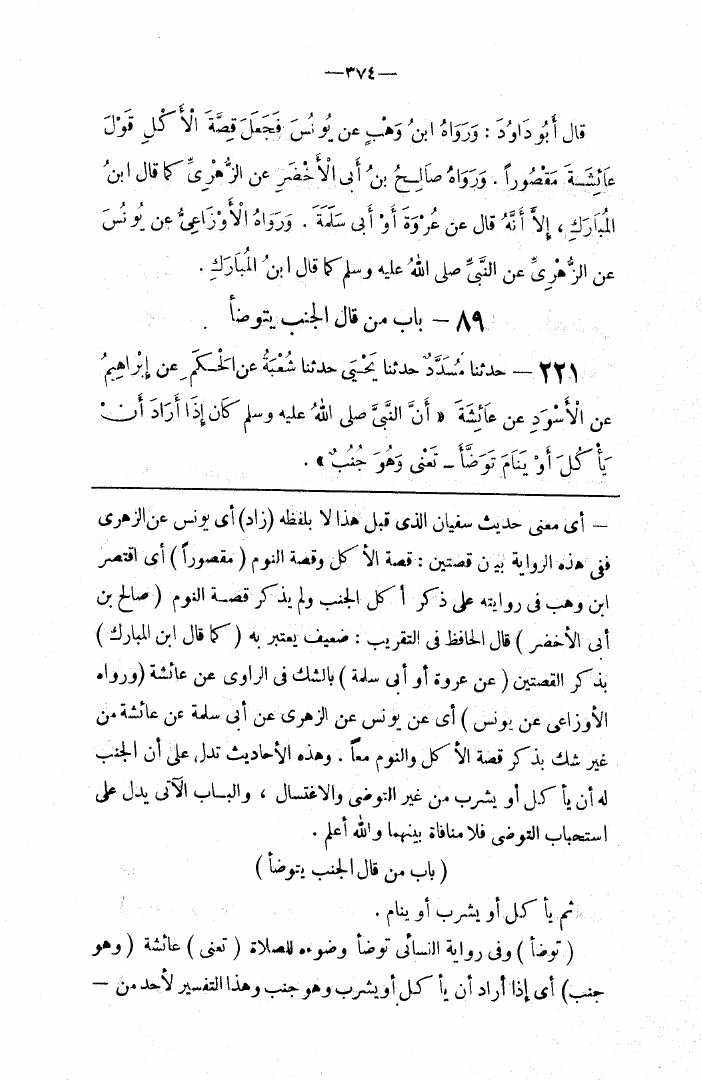 —٣٧٤—
قال أَبُو دَاوُدَ : وَرَوَاهُ ابنُ وَهْبٍ عن يُونُسَ فَجَعَلَ قِصَّةَ الْأَكْلِ قَوْلَ
عَائِشَةَ مَقْصُوراً . وَرَوَاهُ صَالِحُ بنُ أَبى الْأَخْضَرِ عن الزُّهْرِىِّ كما قال ابنُ
المُبَارَكِ ، إلاَّ أَنَّهُ قال عن عُرْوَةَ أَوْ أَبى سَلَمَةَ . وَرَوَاهُ الْأَوْزَاعِىُّ عن يُونُسَ
عن الزُّهْرِىِّ عن النَّبىِّ صلى اللهُ عليه وسلم كما قال ابنُ المُبَارَكِ .
٨٩ — باب من قال الجنب يتوضأ
٢٢١ — حدثنا مُسَدَّدٌ حدثنا يَحْيَى حدثنا شُعْبَةُ عن الحْكَمِ عن إبْرَاهِيمُ
عن الْأَسْوَدِ عن عَائِشَةَ « أَنَّ النَّبىَّ صلى اللهُ عليه وسلم كان إذَا أَرَادَ أَنْ
يَأْكُلَ أَوْ يَنَامَ تَوَضَّأَ ــ تَعْنى وَهُوَ جُنُبٌ » .
— أى معنى حديث سفيان الذى قبل هذا لا بلفظه (زاد) أى يونس عن الزهرى
ففى هذه الرواية بين قصتين : قصة الأكل وقصة النوم ( مقصوراً ) أى اقتصر
ابن وهب فى روايته على ذكر أكل الجنب ولم يذكر قصة النوم ( صالح بن
أبى الأخضر ) قال الحافظ فى التقريب : ضعيف يعتبر به ( كما قال ابن المبارك )
بذكر القصتين ( عن عروة أو أبى سلمة ) بالشك فى الراوى عن عائشة (ورواه
الأوزاعى عن يونس ) أى عن يونس عن الزهرى عن أبى سلمة عن عائشة من
غير شك بذكر قصة الأكل والنوم معاً . وهذه الأحاديث تدل على أن الجنب
له أن يأكل أو يشرب من غير التوضى والاغتسال ، والباب الآتى يدل على
استحباب التوضى فلا منافاة بينهما والله أعلم .
( باب من قال الجنب يتوضأ )
ثم يأكل أو يشرب أو ينام .
( توضأ ) وفى رواية النسائى توضأ وضوءه للصلاة ( تعنى ) عائشة ( وهو
جنب) أى إذا أراد أن يأكل أو يشرب وهو جنب وهذا التفسير لأحد من —